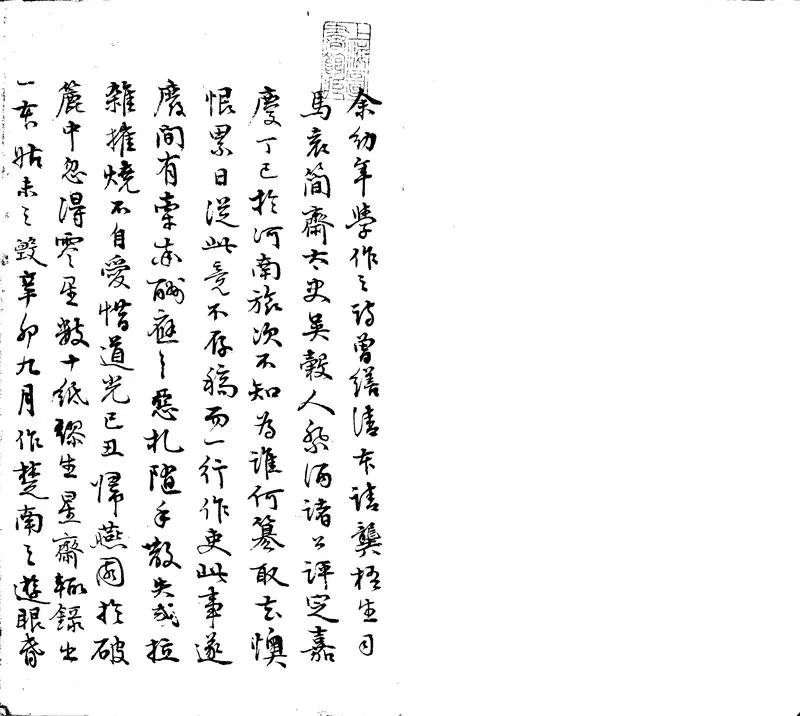 上海圖書館藏
余幼年學作之詩曾繕清本請龔梧生司
馬袁簡齋太史吳穀人祭酒諸公評定嘉
慶丁巳於河南旅次不知為誰何篡取去懊
恨累日從此竟不存稿而一行作吏此事遂
廢間有牽率酬應之惡札隨手散失或拉
雜摧燒不自愛惜道光己丑歸燕園於破
簏中忽得零星數十紙生星齋輙錄出
一束姑未之毀辛卯九月作楚南之遊眼昏